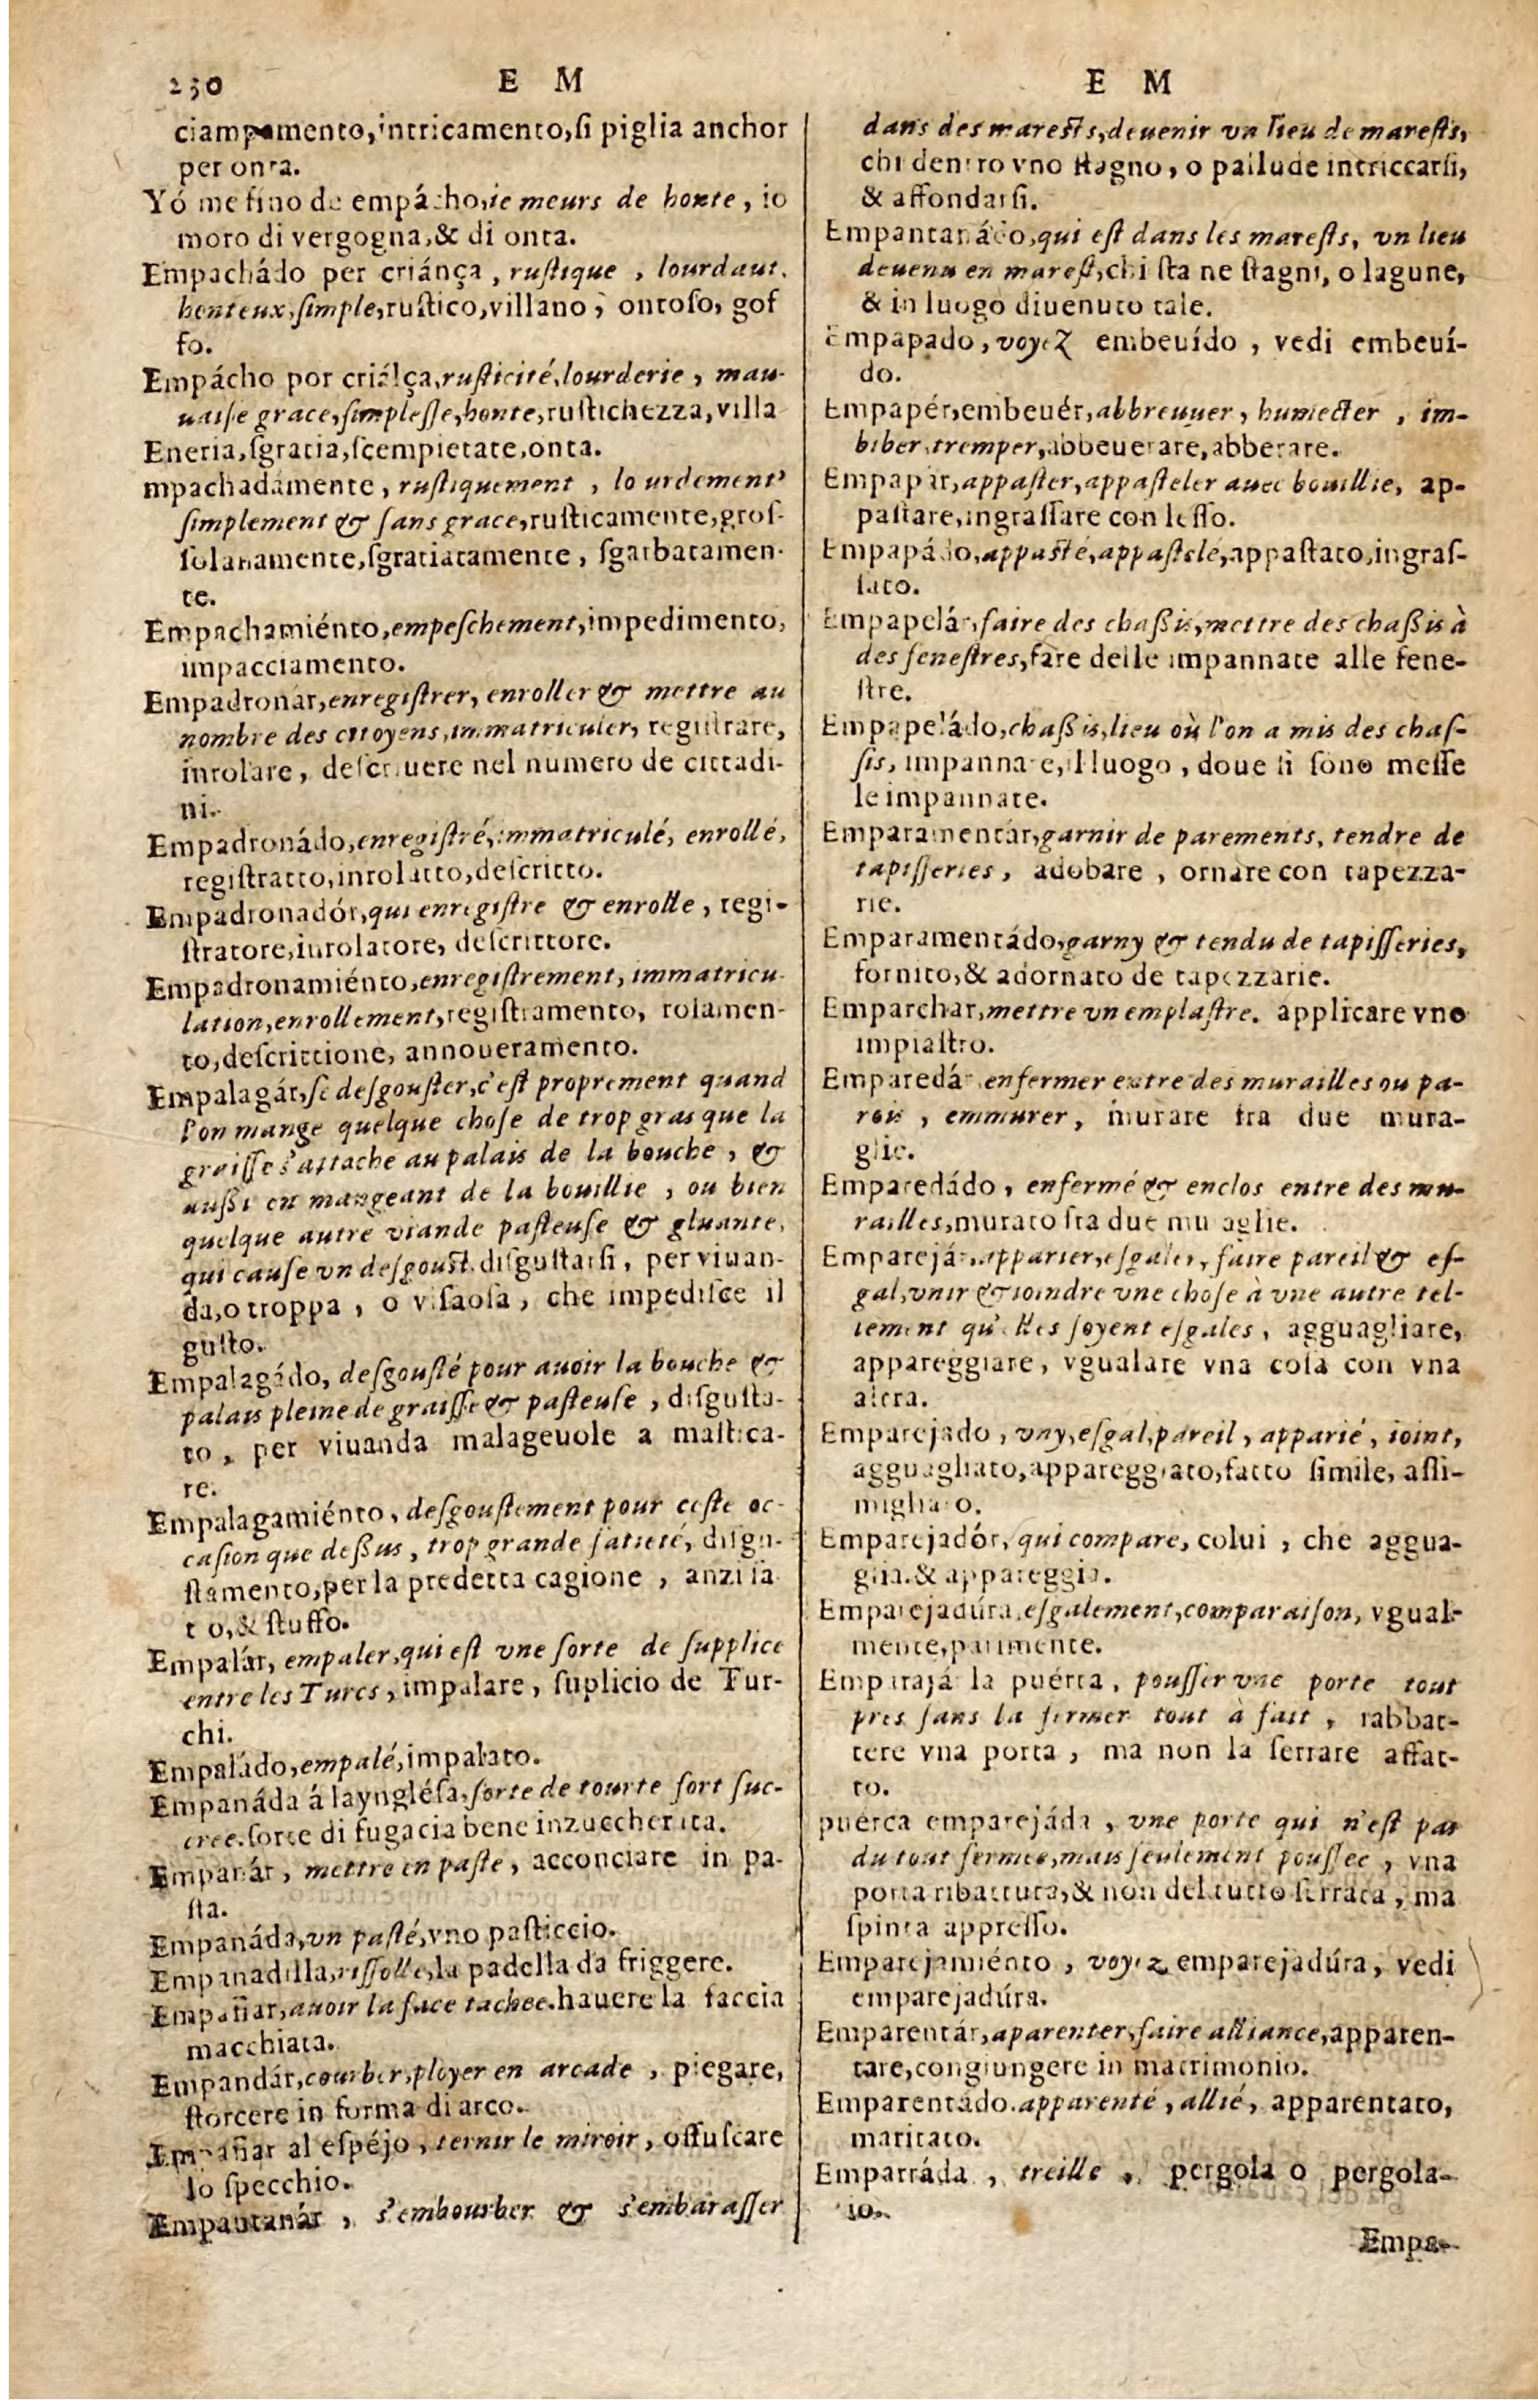 230 E M
ciampamento,intricamento,ſi piglia anchor
per onta.
Yó me fino de empácho,ie meurs de honte, io
moro di vergogna,& di onta.
Empachádo per criánça, ruſtique, lourdaut,
honteux,ſimple,ruſtico,villano, ontoſo, gof
fo.
Empácho por criálça,ruſticité,lourderie, mau-
uaiſe grace,ſimpleſſe,honte,ruſtichezza,villa
Eneria,ſgratia,ſcempietate,onta.
mpachadámente, ruſtiquement, lo urdement,
ſimplement & ſans grace,ruſticamente,groſ-
ſolanamente,ſgratiatamente, ſgarbatamen-
te.
Empachamiénto,empeſchement,impedimento,
impacciamento.
Empadronár,enregiſtrer, enroller & mettre au
nombre des citoyens,immatriculer, regiſtrare,
inrolare, deſcriuere nel numero de cittadi-
ni.
Empadronádo,enregiſtré,immatriculé, enrollé,
regiſtratto,inrolatto,deſcritto.
Empadronadór,qui enregiſtre & enrolle, regi-
ſtratore,inrolatore, deſcrittore.
Empadronamiénto,enregiſtrement, immatricu-
lation,enrollement,regiſtramento, rolamen-
to,deſcrittione, annoueramento.
Empalagár,ſe deſgouſter,c'eſt proprement quand
l'on mange quelque choſe de trop gras que la
graiſſe s'attache au palais de la bouche, &
außi en mangeant de la bouillie, ou bien
quelque autre viande paſteuſe & gluante,
qui cauſe vn deſgouſt.diſguſtarſi, per viuan-
da,o troppa, o viſaoſa, che impediſce il
guſto.
Empalagádo, deſgouſté pour auoir la bouche &
palais pleine de graiſſe & paſteuſe, diſguſta-
to, per viuanda malageuole a maſtica-
re.
Empalagamiénto, deſgouſtement pour ceſte oc-
caſion que deßus, trop grande ſatieté, diſgu-
ſtamento,per la predetta cagione, anzi ſa
t o,& ſtuffo.
Empalár, empaler,qui eſt vne ſorte de ſupplice
entre les Turcs, impalare, ſuplicio de Tur-
chi.
Empaládo,empalé,impalato.
Empanáda á la ynglésa,ſorte de tourte fort ſuc-
cree.ſorte di fugacia bene inzuccherata.
Empanár, mettre en paſte, acconciare in pa-
ſta.
Empanáda,vn paſté,vno paſticcio.
Empanadilla,riſſolle,la padella da friggere.
Empañar,auoir la face tachee.hauere la faccia
macchiata.
Empandár,courber,ployer en arcade, piegare,
ſtorcere in forma di arco.
Empañar al eſpéjo, ternir le miroir, offuſcare
lo ſpecchio.
Empantanár, s'embourber & s'embaraſſer
E M
dans des mareſts,deuenir vn lieu de mareſts,
chi dentro vno ſtagno, o pallude intriccarſi,
& affondarſi.
Empantanádo,qui eſt dans les mareſts, vn lieu
deuenu en mareſt,chi ſta ne ſtagni, o lagune,
& in luogo diuenuto tale.
Empapado, voyez embeuído, vedi embeuí-
do.
Empapér,embeuér,abbreuuer, humecter, im-
biber,tremper,abbeuerare,abberare.
Empapár,appaſter,appaſteler auec bouillie, ap-
paſtare,ingraſſare con leſſo.
Empapádo,appaſté,appaſtelé,appaſtato,ingraſ-
ſato.
Empapelár,faire des chaßis,mettre des chaßis à
des feneſtres,fare delle impannate alle fene-
ſtre.
Empapeládo,chaßis,lieu où l'on a mis des chaſ-
ſis, impannate,il luogo, doue ſi ſono meſſe
le impannate.
Emparamentár,garnir de parements, tendre de
tapiſſeries, adobare, ornare con tapezza-
rie.
Emparamentádo,garny & tendu de tapiſſeries,
fornito,& adornato de tapezzarie.
Emparchar,mettre vn emplaſtre. applicare vno
impiaſtro.
Emparedár enfermer entre des murailles ou pa-
rois, emmurer, murare tra due mura-
glie.
Emparedádo, enfermé & enclos entre des mu-
railles,murato fra due mu aglie.
Emparejár,apparier,eſgaler, faire pareil & eſ-
gal,vnir & ioindre vne choſe à vne autre tel-
lement qu'elles ſoyent eſgales, agguagliare,
appareggiare, vgualare vna coſa con vna
altra.
Emparejado, vny,eſgal,pareil, apparié, ioint,
agguagliato,appareggiato,fatto ſimile, aſſi-
migliato.
Emparejadór, qui compare, colui, che aggua-
glia.& appareggia.
Emparejadúra,eſgalement,comparaiſon, vgual-
mente,parimente.
Emparajá la puérta, pouſſer vne porte tout
pres ſans la fermer tout à fait, rabbat-
tere vna porta, ma non la ſerrare affat-
to.
puérca emparejáda, vne porte qui n'eſt pas
du tout fermee,mais ſeulement pouſſee, vna
porta ribattuta,& non del tutto ſerrata, ma
ſpinta appreſſo.
Emparejamiénto, voyez emparejadúra, vedi
emparejadúra.
Emparentár,aparenter,faire alliance,apparen-
tare,congiungere in matrimonio.
Emparentádo.apparenté, allié, apparentato,
maritato.
Emparráda, treille, pergola o pergola-
io.
Empa-